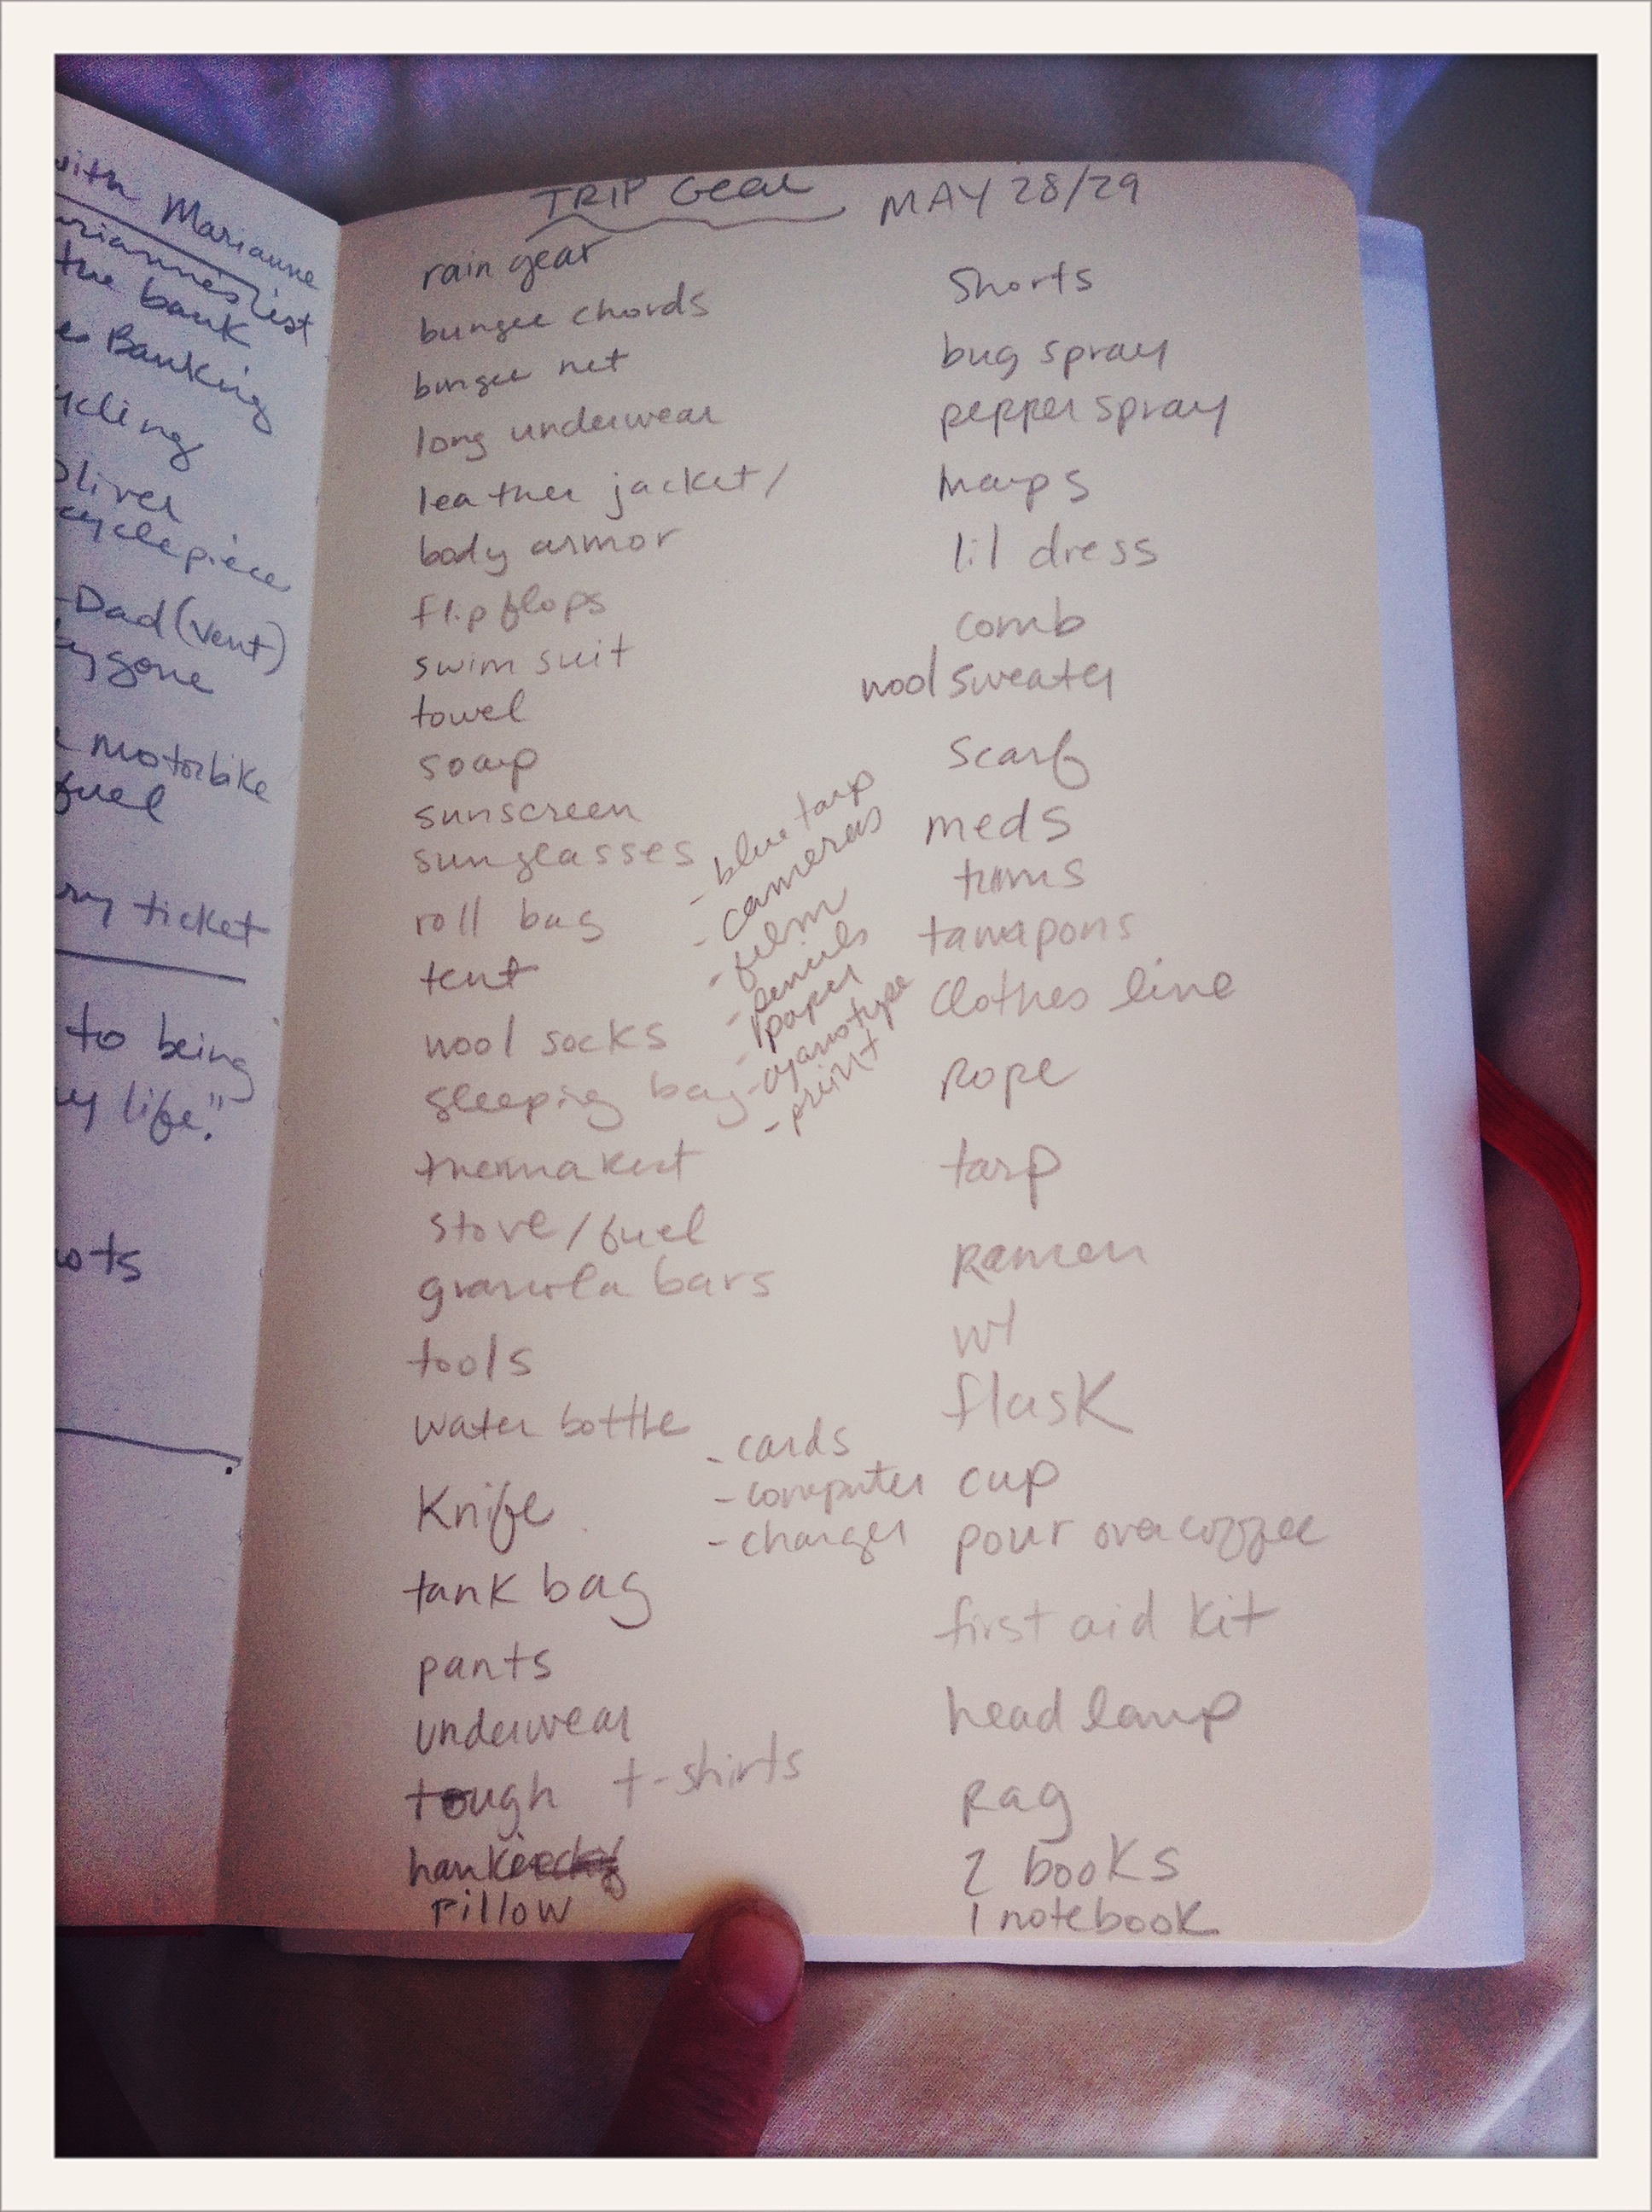 with Marianne
list
the bank
Banking
Oliver
cyclepiece
-Dad (vent)
bygone
motorbike
fuel
ticket
to being
life."
TRIP Gear MAY 28/29
rain gear
bungee chords
bungee net
long underwear
leather jacket/
body armor
flip flops
swim suit
towel
soap
sunscreen
sunglasses
roll bag
tent
wool socks
sleeping bag
thermarest
stove/fuel
granola bars
tools
water bottle
Knife
tank bag
pants
underwear
tough t-shirts
hankie
pillow
- blue tarp
- cameras
- film
- pencils
- paper
- cyanotype
- print
- cards
- computer
- charger
Shorts
bug spray
pepper spray
maps
lil dress
comb
wool sweater
scarf
meds
tums
tampons
clothes line
Rope
tarp
Ramen
flask
cup
pour over coffee
first aid kit
head lamp
Rag
2 books
1 notebook